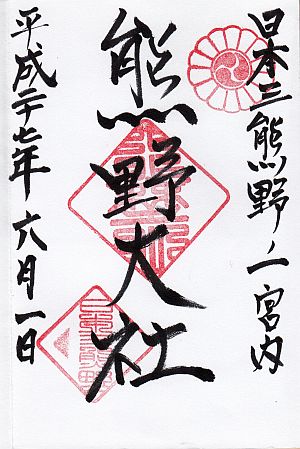 日本三熊野ノ一宮内
熊野大社
平成二十七年六月一日